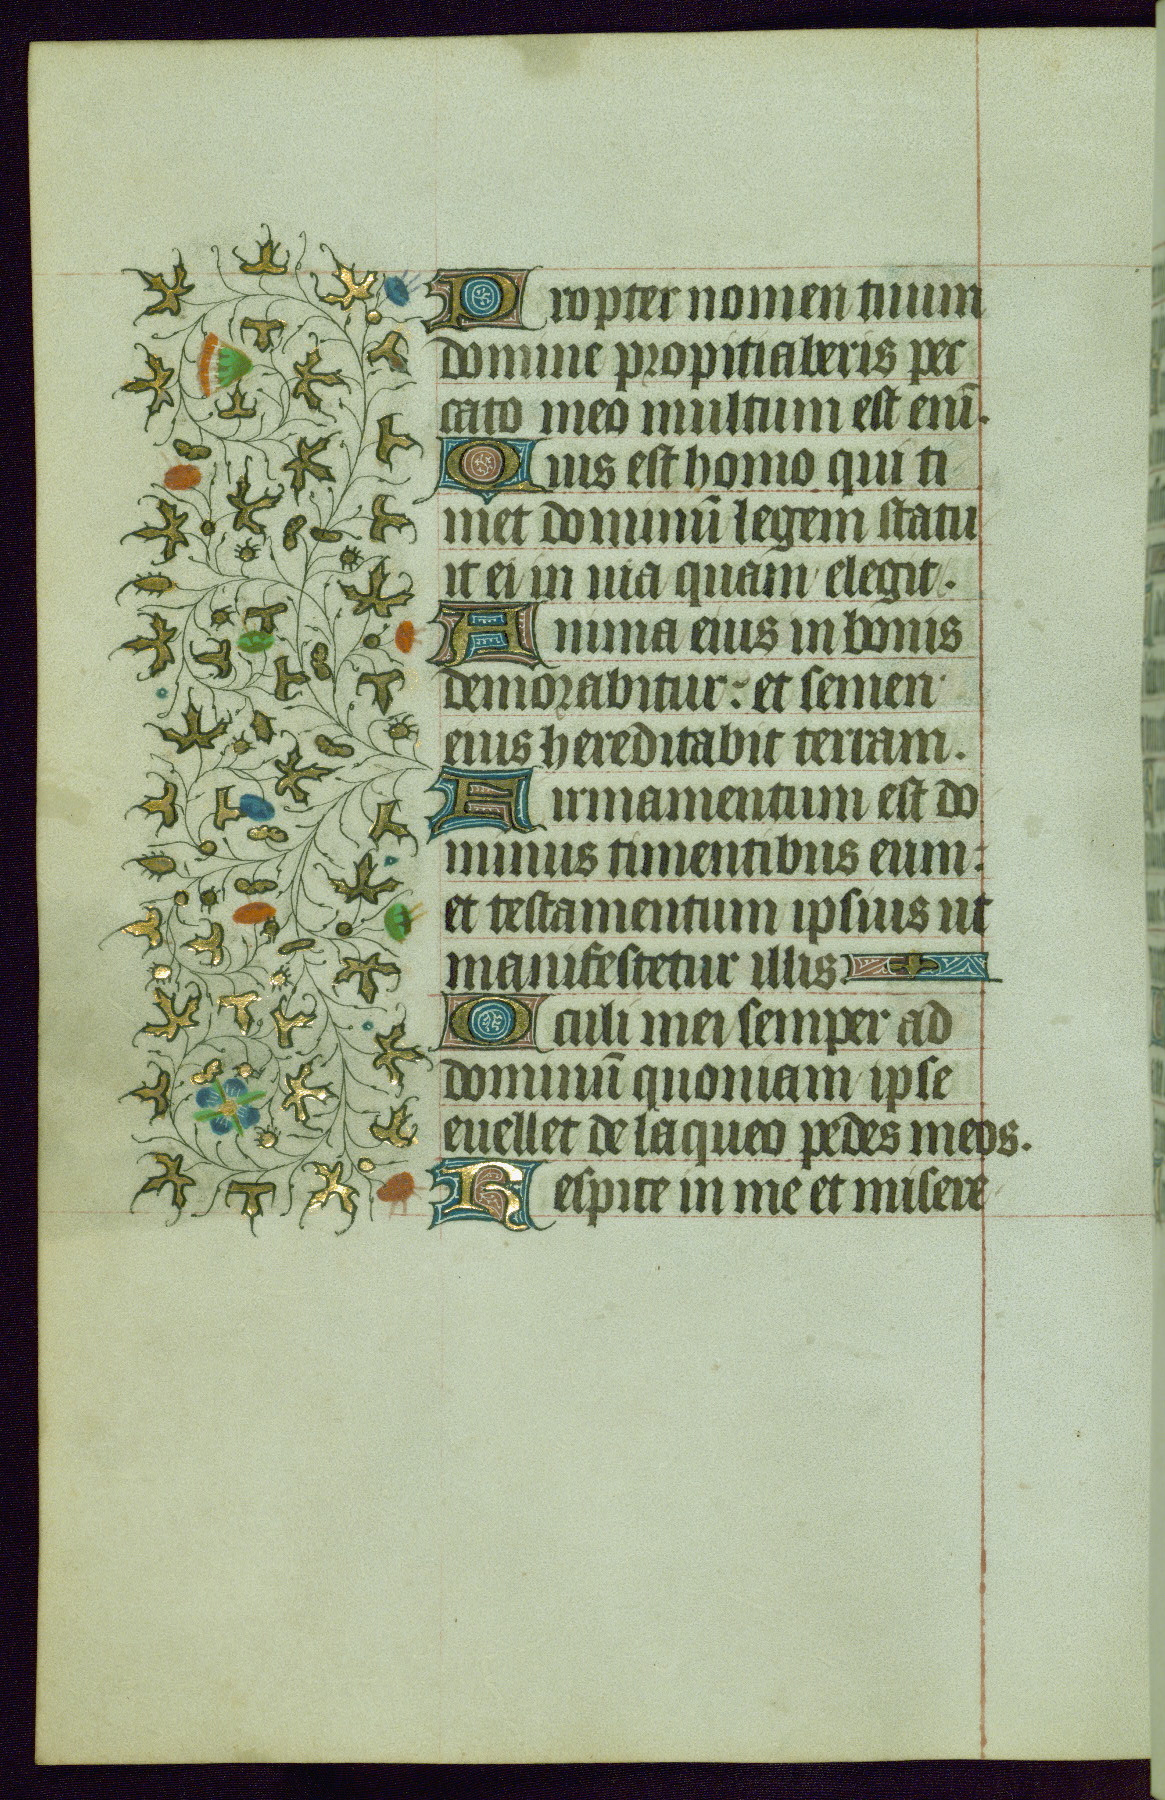 Propter nomen tuum
domine propitiaberis pec
cato meo multum est enī.
Quis est homo qui ti
met dominū legem statu
it ei in uia quam elegit.
Anima eius in bonis
demorabitur: et semen
eius hereditabit terram.
Firmamentum est do
minus timentibus eum:
et testamentum ipsius ut
manifestetur illis.
Oculi mei semper ad
dominū quoniam ipse
euellet de laqueo pedes meos.
Respice in me et misere